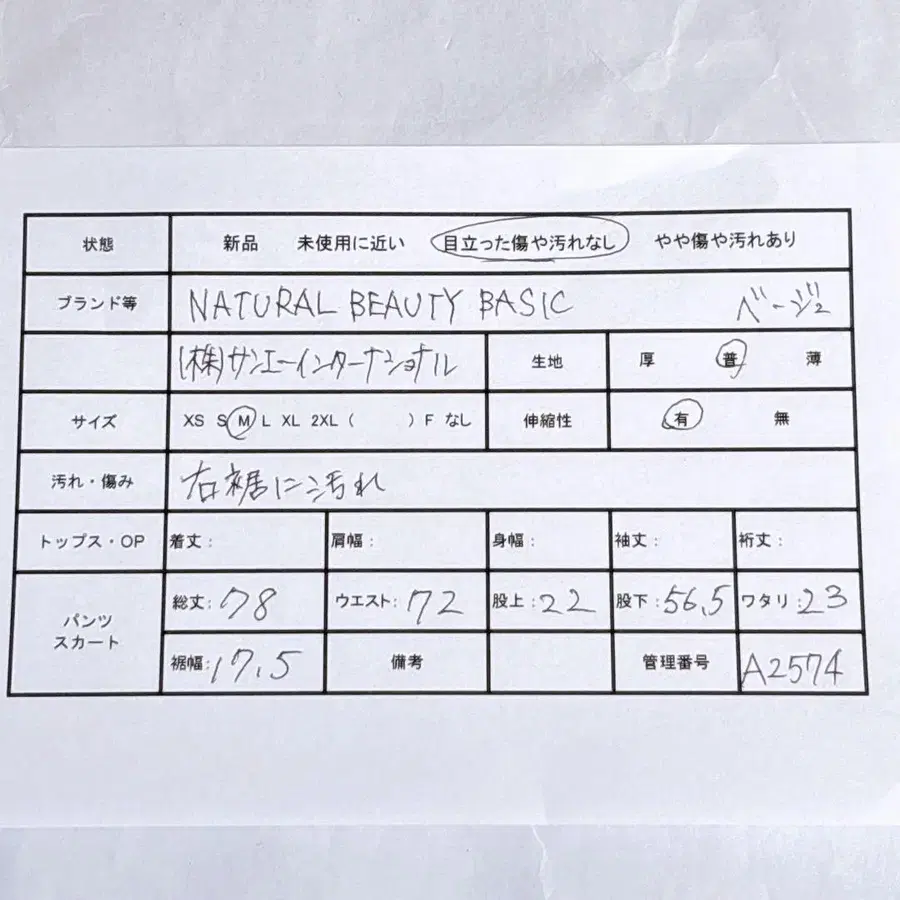 状態 新品 未使用に近い 目立った傷や汚れなし やや傷や汚れあり
ブランド等 NATURAL BEAUTY BASIC ベージュ
(株)サンエーインターナショナル 生地 厚 普 薄
サイズ XS S M L XL 2XL ( ) F なし 伸縮性 有 無
汚れ・傷み 右裾に汚れ
トップス・OP 着丈: 肩幅: 身幅: 袖丈: 裄丈:
パンツ スカート 総丈:78 ウエスト:72 股上:22 股下:56.5 ワタリ:23
裾幅:17.5 備考 管理番号 A2574